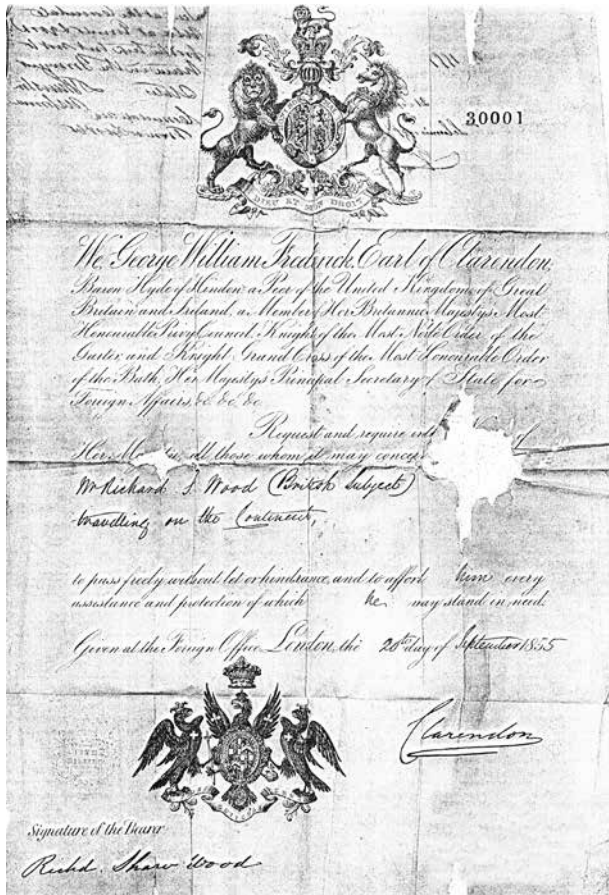 30001
DIEU ET MON DROIT
We, George William Fredrick, Earl of Clarendon,
Baron Hyde of Hindon, a Peer of the United Kingdom of Great
Britain and Ireland, a Member of Her Britannic Majesty's Most
Honourable Privy Council, Knight of the Most Noble Order of the
Garter, and Knight Grand Cross of the Most Honourable Order
of the Bath, Her Majesty's Principal Secretary of State for
Foreign Affairs, &c &c &c
Request and require in of
Her all those whom it may concern
Mr Richard S. Wood (British Subject)
travelling on the Continent,
to pass freely without let or hindrance, and to afford him every
assistance and protection of which he may stand in need.
Given at the Foreign Office, London, the 20th day of September 1855
Clarendon
Signature of the Bearer
Richd. Shaw Wood